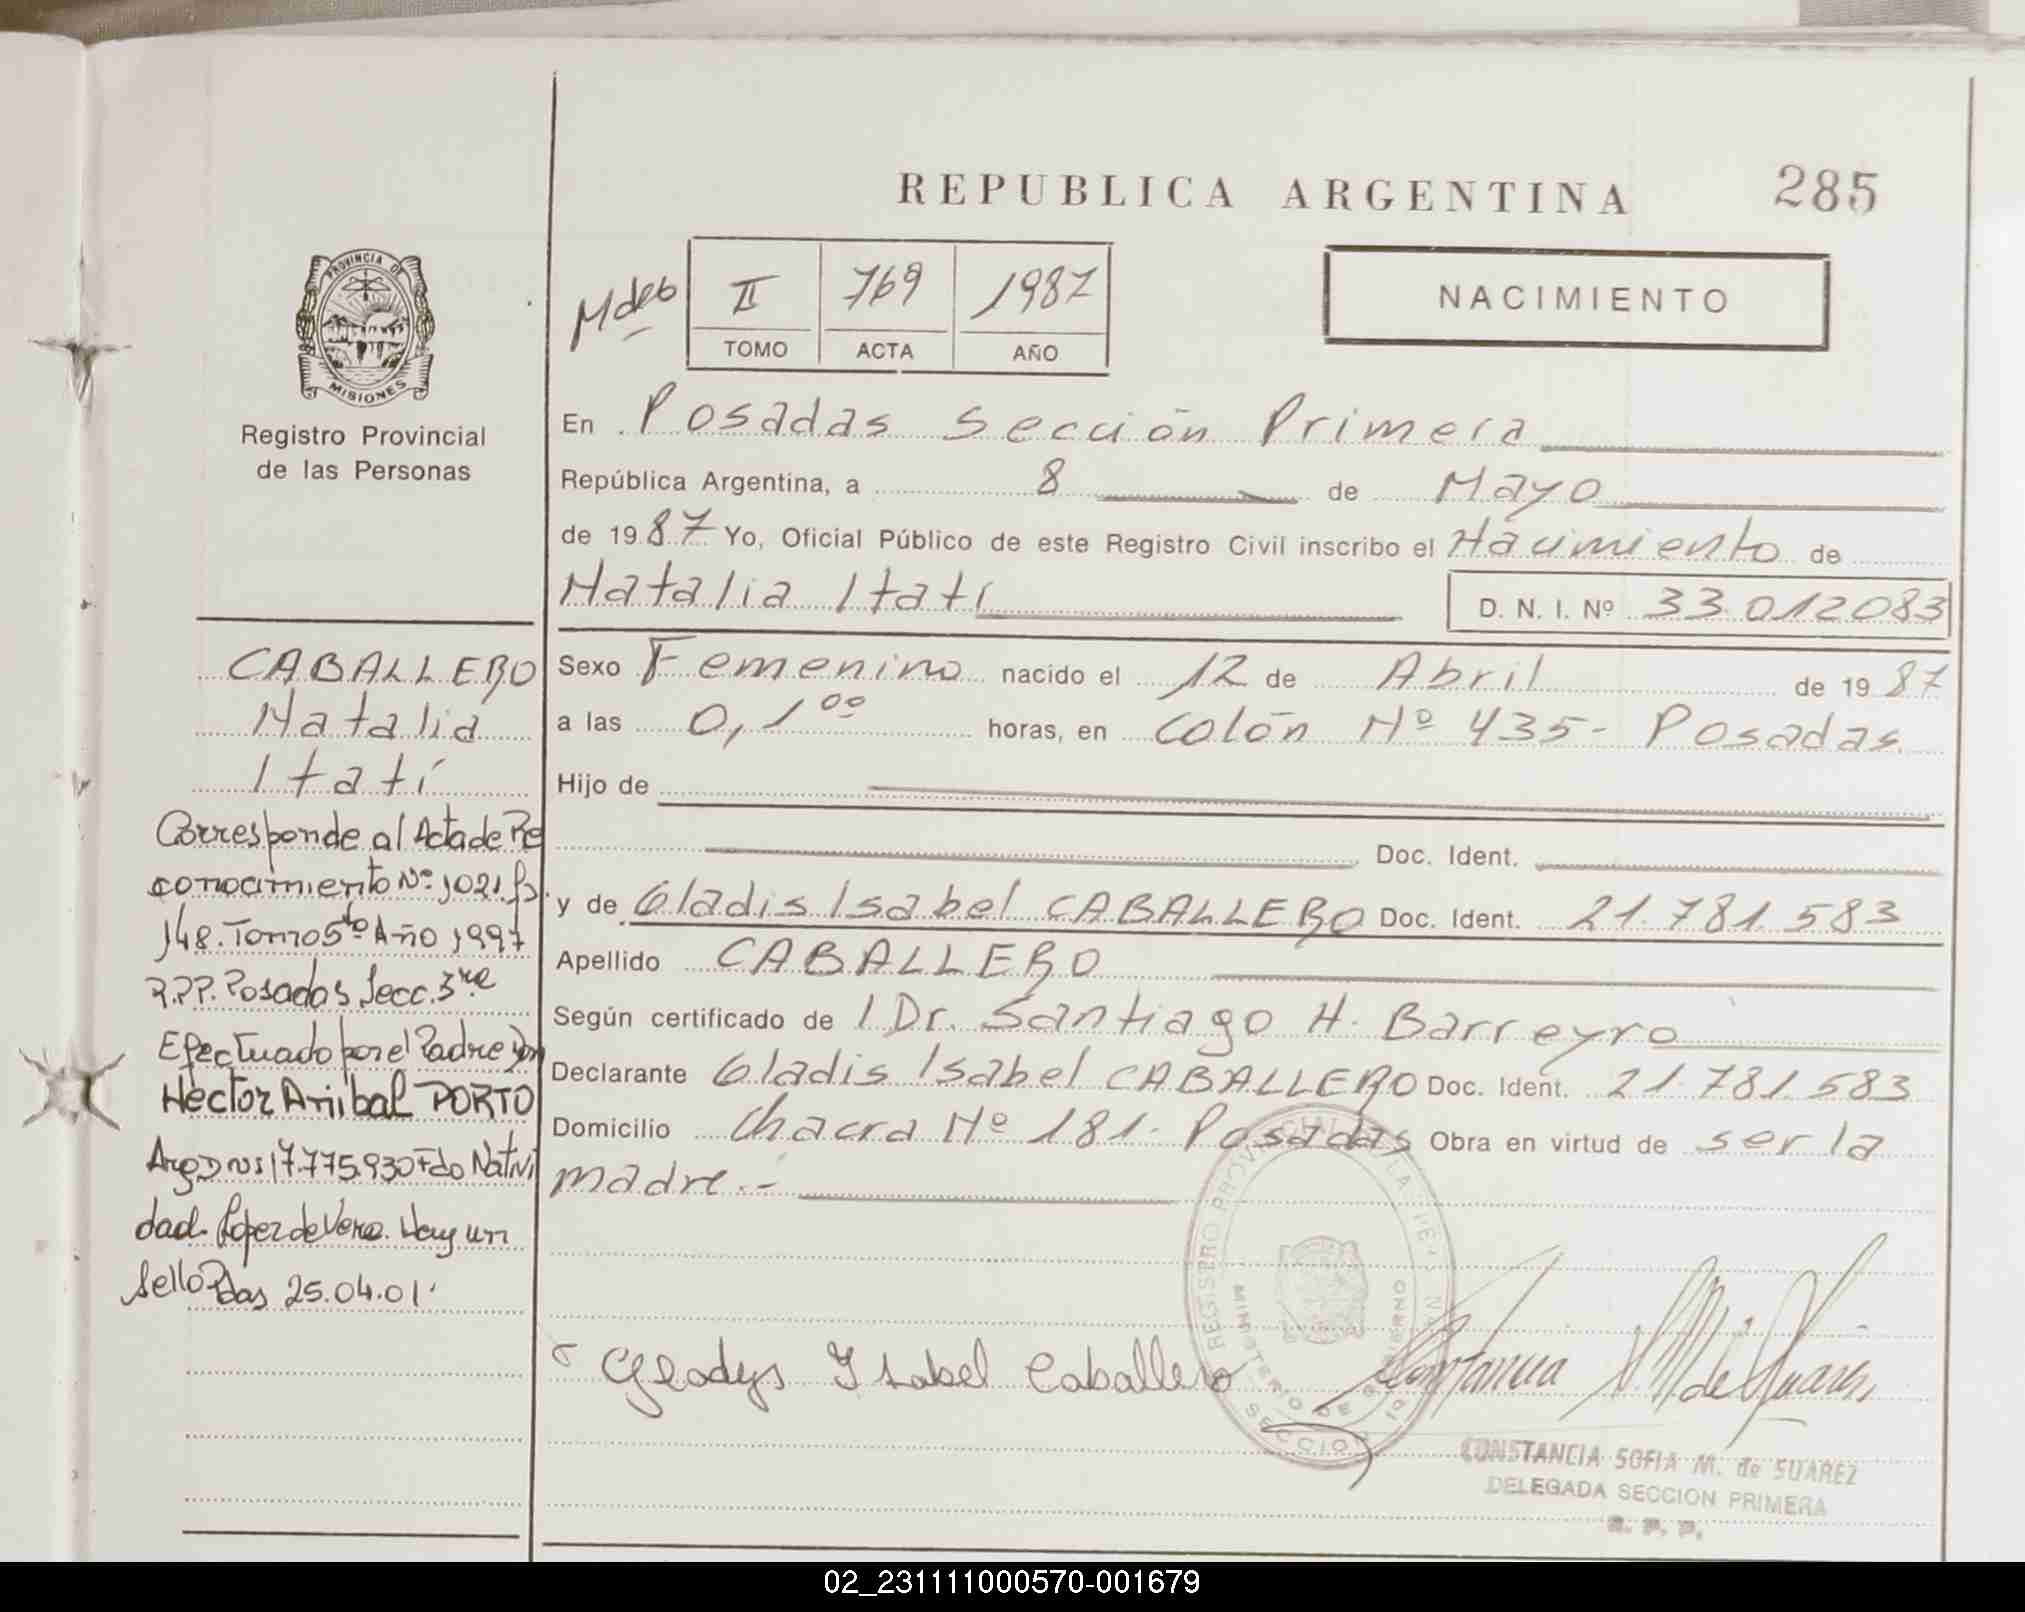 REPUBLICA ARGENTINA
285
PROVINCIA DE
MISIONES
Registro Provincial
de las Personas
II 769 1987
TOMO ACTA AÑO
NACIMIENTO
En Posadas Sección Primera
República Argentina, a 8 de Mayo
de 1987 Yo, Oficial Público de este Registro Civil inscribo el Nacimiento de
Natalia Itatí
D. N. I. Nº 33.012083
Sexo Femenino nacido el 12 de Abril de 1987
a las 0,1⁰⁰ horas, en Colón Nº 435- Posadas
Hijo de
Doc. Ident.
y de Gladis Isabel CABALLERO Doc. Ident. 21.781.583
Apellido CABALLERO
Según certificado de / Dr. Santiago H. Barreyro
Declarante Gladis Isabel CABALLERO Doc. Ident. 21.781.583
Domicilio Chacra Nº 181- Posadas Obra en virtud de ser la
madre.-
CABALLERO
Natalia
Itatí
Corresponde al Acta de Re
conocimiento Nº 1021. fs.
148. Tomo 5to Año 1997
R.P.P. Posadas Secc. 3ra
Efectuado por el Padre Don
Hector Anibal PORTO
Arg DNI 17.775.930 Fdo Nativi
dad. Lopez de Vera. Hay un
sello Pdas 25.04.01.
Gladys Isabel Caballero
Constancia
REGISTRO PROVINCIAL DE LAS PER
MINISTERIO DE GOBIERNO
SECCION 1
CONSTANCIA SOFIA M. de SUAREZ
DELEGADA SECCION PRIMERA
R. P. P.
02_231111000570-001679